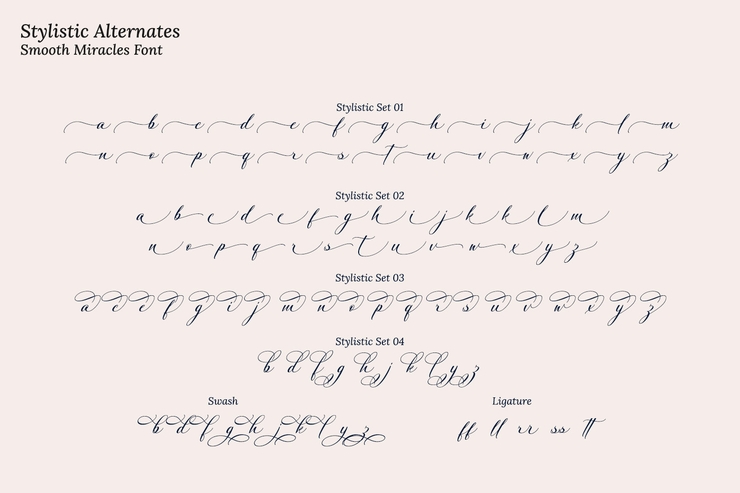 Stylistic Alternates
Smooth Miracles Font
Stylistic Set 01
a b c d e f g h i j k l m
n o p q r s t u v w x y z
Stylistic Set 02
a b c d e f g h i j k k l m
n o p q r s t u v w x y z
Stylistic Set 03
a c e f g i j m n o p q r s u v w x y z
Stylistic Set 04
b d f g h j k l y z
Swash
b d f g h j k l y z
Ligature
ff ll rr ss tt